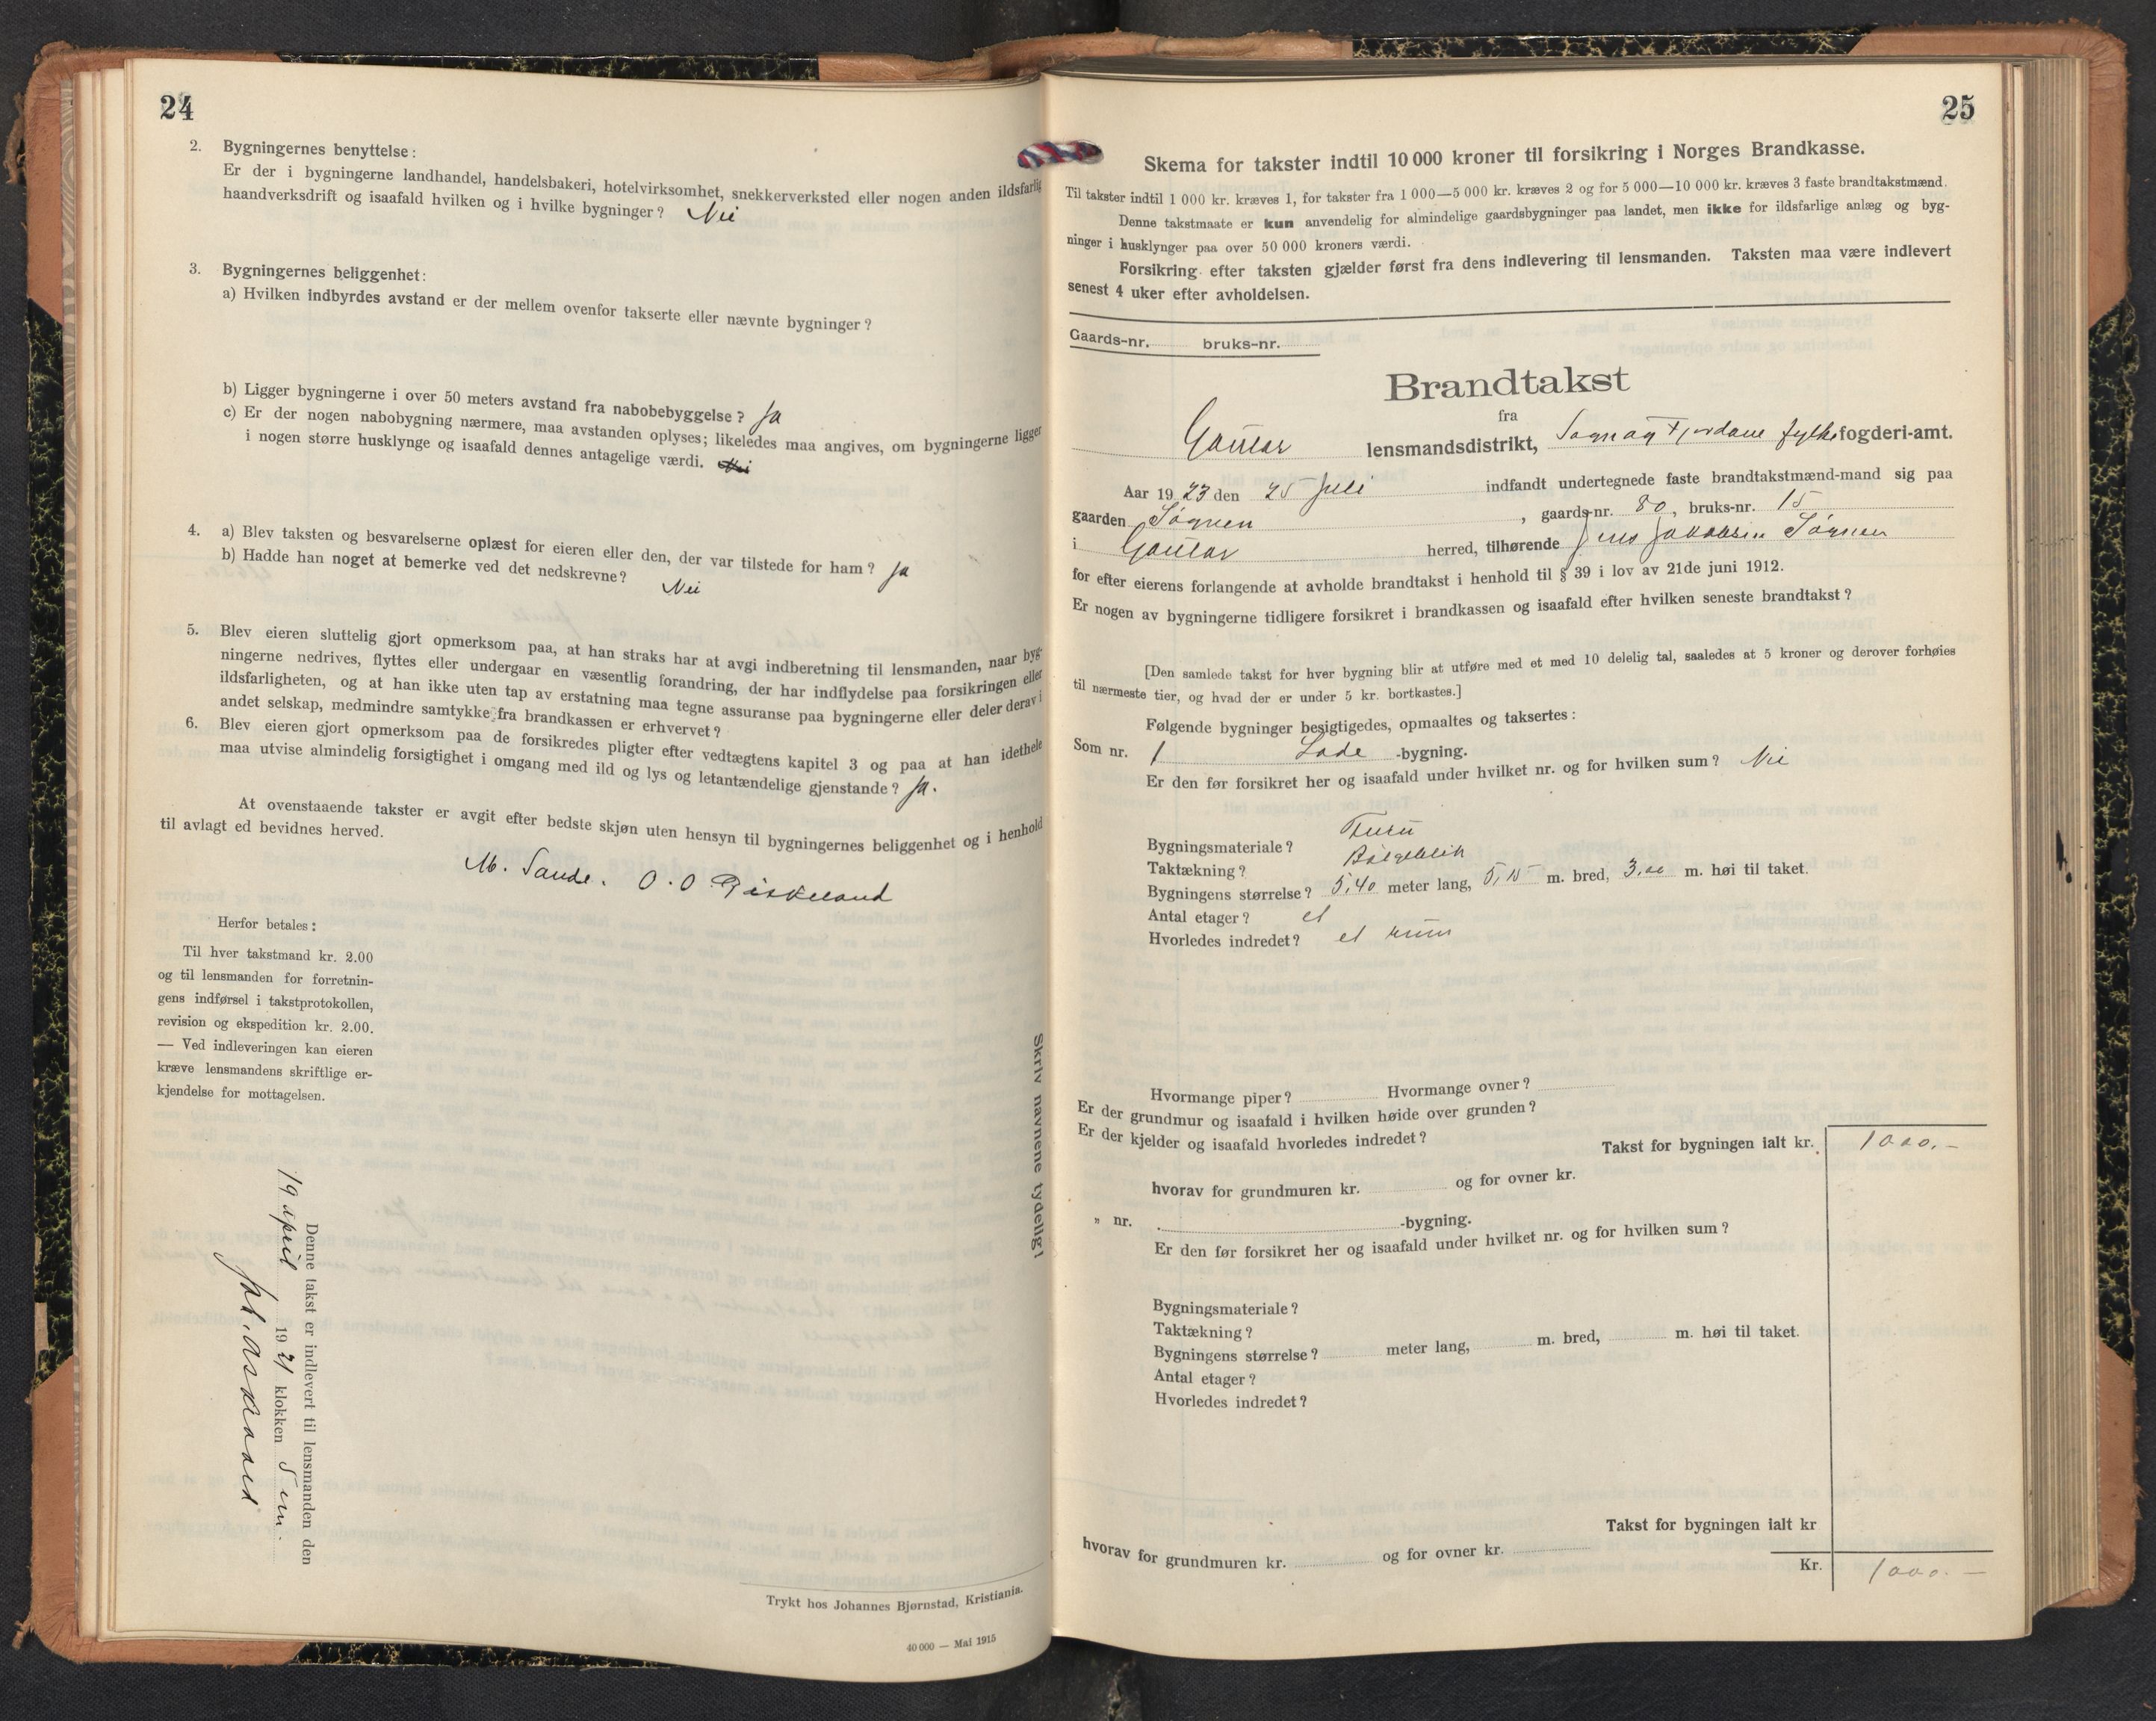 24
2. Bygningernes benyttelse:
Er der i bygningerne landhandel, handelsbakeri, hotelvirksomhet, snekkerverksted eller nogen anden ildsfarlig
haandverksdrift og isaafald hvilken og i hvilke bygninger? Nei
3. Bygningernes beliggenhet:
a) Hvilken indbyrdes avstand er der mellem ovenfor takserte eller nævnte bygninger?
b) Ligger bygningerne i over 50 meters avstand fra nabobebyggelse? Ja
c) Er der nogen nabobygning nærmere, maa avstanden oplyses; likeledes maa angives, om bygningerne ligger
i nogen større husklynge og isaafald dennes antagelige værdi. Nei
4. a) Blev taksten og besvarelserne oplæst for eieren eller den, der var tilstede for ham? Ja
b) Hadde han noget at bemerke ved det nedskrevne? Nei
5. Blev eieren sluttelig gjort opmerksom paa, at han straks har at avgi indberetning til lensmanden, naar byg-
ningerne nedrives, flyttes eller undergaar en væsentlig forandring, der har indflydelse paa forsikringen eller
ildsfarligheten, og at han ikke uten tap av erstatning maa tegne assuranse paa bygningerne eller deler derav i
andet selskap, medmindre samtykke fra brandkassen er erhvervet?
6. Blev eieren gjort opmerksom paa de forsikredes pligter efter vedtægtens kapitel 3 og paa at han idethele
maa utvise almindelig forsigtighet i omgang med ild og lys og letantændelige gjenstande? Ja.
At ovenstaaende takster er avgit efter bedste skjøn uten hensyn til bygningernes beliggenhet og i henhold
til avlagt ed bevidnes herved.
M. Sande. O. O. Birkeland
Herfor betales:
Til hver takstmand kr. 2.00
og til lensmanden for forretnin-
gens indførsel i takstprotokollen,
revision og ekspedition kr. 2.00.
— Ved indleveringen kan eieren
kræve lensmandens skriftlige er-
kjendelse for mottagelsen.
Denne takst er indlevert til lensmanden den
19 april 1921 klokken 5 em.
Skriv navnene tydelig!
Trykt hos Johannes Bjørnstad, Kristiania.
40 000 — Mai 1915
25
Skema for takster indtil 10 000 kroner til forsikring i Norges Brandkasse.
Til takster indtil 1 000 kr. kræves 1, for takster fra 1 000—5 000 kr. kræves 2 og for 5 000—10 000 kr. kræves 3 faste brandtakstmænd.
Denne takstmaate er kun anvendelig for almindelige gaardsbygninger paa landet, men ikke for ildsfarlige anlæg og byg-
ninger i husklynger paa over 50 000 kroners værdi.
Forsikring efter taksten gjælder først fra dens indlevering til lensmanden. Taksten maa være indlevert
senest 4 uker efter avholdelsen.
Gaards-nr. bruks-nr.
Brandtakst
fra
Gaular lensmandsdistrikt, Sogn og Fjordane fylke fogderi-amt.
Aar 1923 den 25 juli indfandt undertegnede faste brandtakstmænd-mand sig paa
gaarden Søgnen, gaards-nr. 80, bruks-nr. 15
i Gaular herred, tilhørende Jens Jakobsen Søgnen
for efter eierens forlangende at avholde brandtakst i henhold til § 39 i lov av 21de juni 1912.
Er nogen av bygningerne tidligere forsikret i brandkassen og isaafald efter hvilken seneste brandtakst?
[Den samlede takst for hver bygning blir at utføre med et med 10 delelig tal, saaledes at 5 kroner og derover forhøies
til nærmeste tier, og hvad der er under 5 kr. bortkastes.]
Følgende bygninger besigtigedes, opmaaltes og taksertes:
Som nr. 1 Lade -bygning.
Er den før forsikret her og isaafald under hvilket nr. og for hvilken sum? Nei
Bygningsmateriale? Furu
Taktækning? Bølgeblik
Bygningens størrelse? 5,40 meter lang, 5,15 m. bred, 3,00 m. høi til taket.
Antal etager? et
Hvorledes indredet? et rum
Hvormange piper? Hvormange ovner?
Er der grundmur og isaafald i hvilken høide over grunden?
Er der kjelder og isaafald hvorledes indredet?
Takst for bygningen ialt kr. 1000.-
hvorav for grundmuren kr. og for ovner kr.
„ nr. -bygning.
Er den før forsikret her og isaafald under hvilket nr. og for hvilken sum?
Bygningsmateriale?
Taktækning?
Bygningens størrelse? meter lang, m. bred, m. høi til taket.
Antal etager?
Hvorledes indredet?
Takst for bygningen ialt kr
hvorav for grundmuren kr. og for ovner kr.
Kr. 1000.-